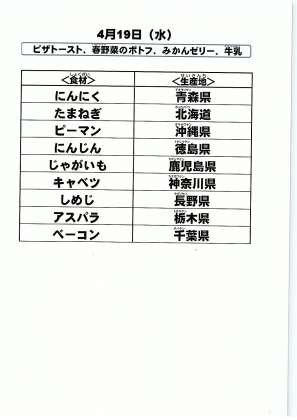 4月19日（水）
ピザトースト、春野菜のポトフ、みかんゼリー、牛乳
＜食材＞ ＜生産地＞
にんにく 青森県
たまねぎ 北海道
ピーマン 沖縄県
にんじん 徳島県
じゃがいも 鹿児島県
キャベツ 神奈川県
しめじ 長野県
アスパラ 栃木県
ベーコン 千葉県